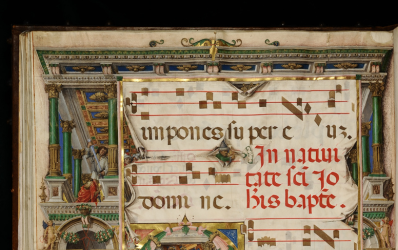 impones super e uz.
In natiui
tate sci Io
domi ne. his bapte.